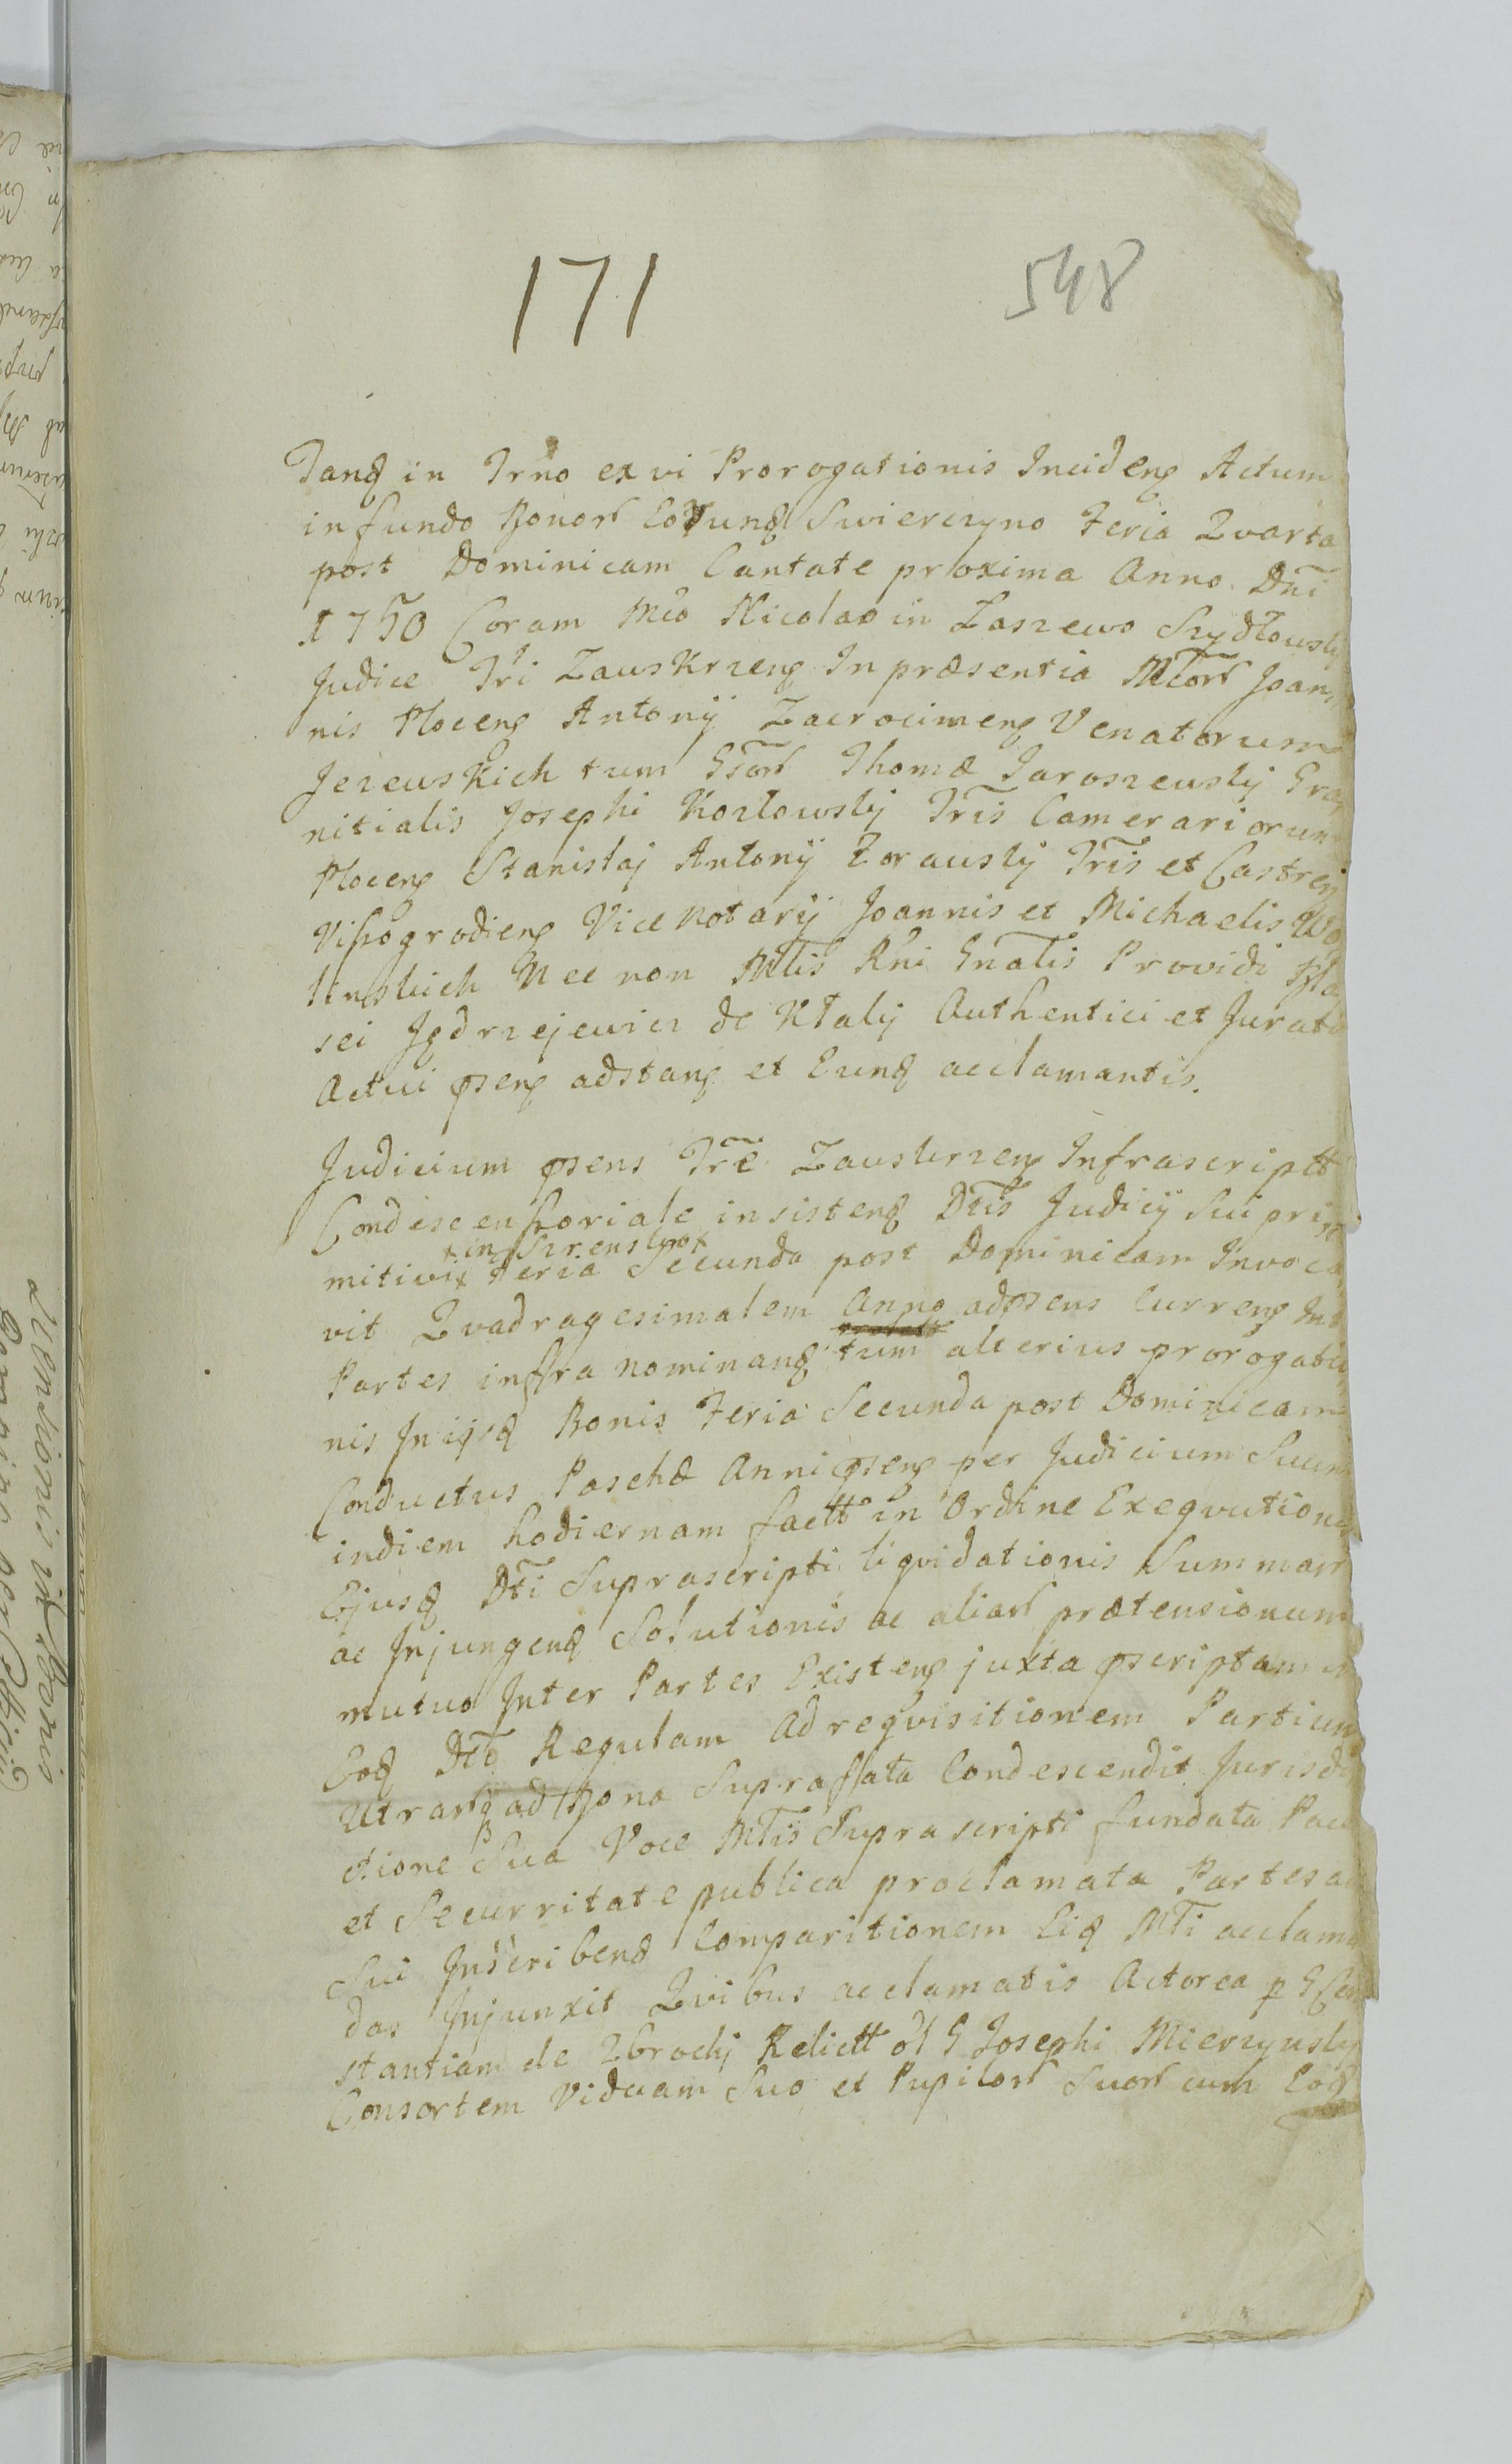 171
548
Tanq in Trño ex vi Prorogationis Incideng Actum
in fundo Bonor Eorung Swierczyno Feria Qvarta
post Dominicam Cantate proxima Anno Dñi
1750 Coram Mco Nicolao in Zaszewo Szydłowsky
Judice Tri Zauskrzeng In præsentia Mcor Joan,
nis Ploceng Antonÿ Zacrocimeng Venatorum
Jezewskich tum Gsor Thomæ Jaroszewsky Gra,
nitialis Josephi Kozłowsky Tris Camerariorum
Ploceng Stanislaj Antonÿ Zorawsky Tris et Castreng
Vissogrodieng Vice Notarÿ Joannis et Michaelis Wo,
linskich Nec non Mtlis Rñi Gnalis Providi
sei Jędrzejewicz de Ktaly Authentici et Jurati
Actui pseng adstang et Eunq acclamantis.
Judicium psens Tre Zauskrzeng Infrascriptt
Condescensoriale insisteng Dtis Judicÿ Sui pri
x in x
mitivi x Feria Secunda post Dominicam Invoca,
vit Qvadragesimalem Anno adpsens Curreng Int
Partes infra nominang tum alterius prorogatio
nis In ijsq Bonis Feria Secunda post Dominicam
Conductus Paschæ Anni pseng per Judicium Suum
in diem hodiernam factt in Ordine Exeqvutionis
Ejusq Dti Suprascripti liqvidationis Summarr
ac Injungenq Solutionis ac aliar prætensionum
mutuo Inter Partes Existeng juxta pscriptam
Eoq Dto Regulam Ad reqvisitionem Partium
Utrarq ad Bona Supraffata Condescendit Jurisdi
ctione Sua Voce Mtlis Suprascripti fundata Pace
et Securritate publica proclamata Partes ad
Sui Inscribenq Comparitionem Eiq Mtli acclama
das Injunxit Qvibus acclamatis Actorea p G Con
stantiam de Zbrochy Relictt ol G Josephi Mierzynsky
Consortem Viduam Suo et Pupilor Suor cum Eoq